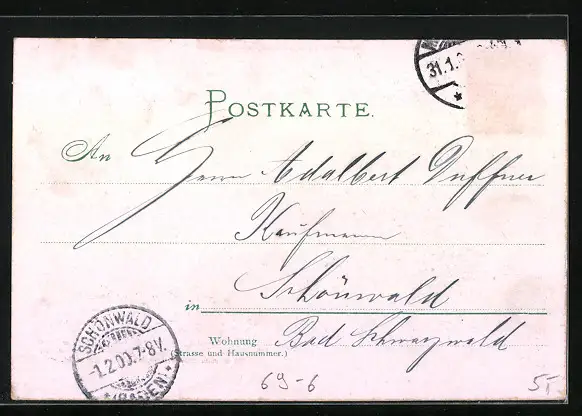 31.1.
POSTKARTE.
An Herrn Adalbert Duffner
Kaufmann
in Schönwald
Wohnung
(Strasse und Hausnummer.)
Bad Schwarzwald
SCHÖNWALD
1.2.00.7-8V.
(BADEN)
69-6
55